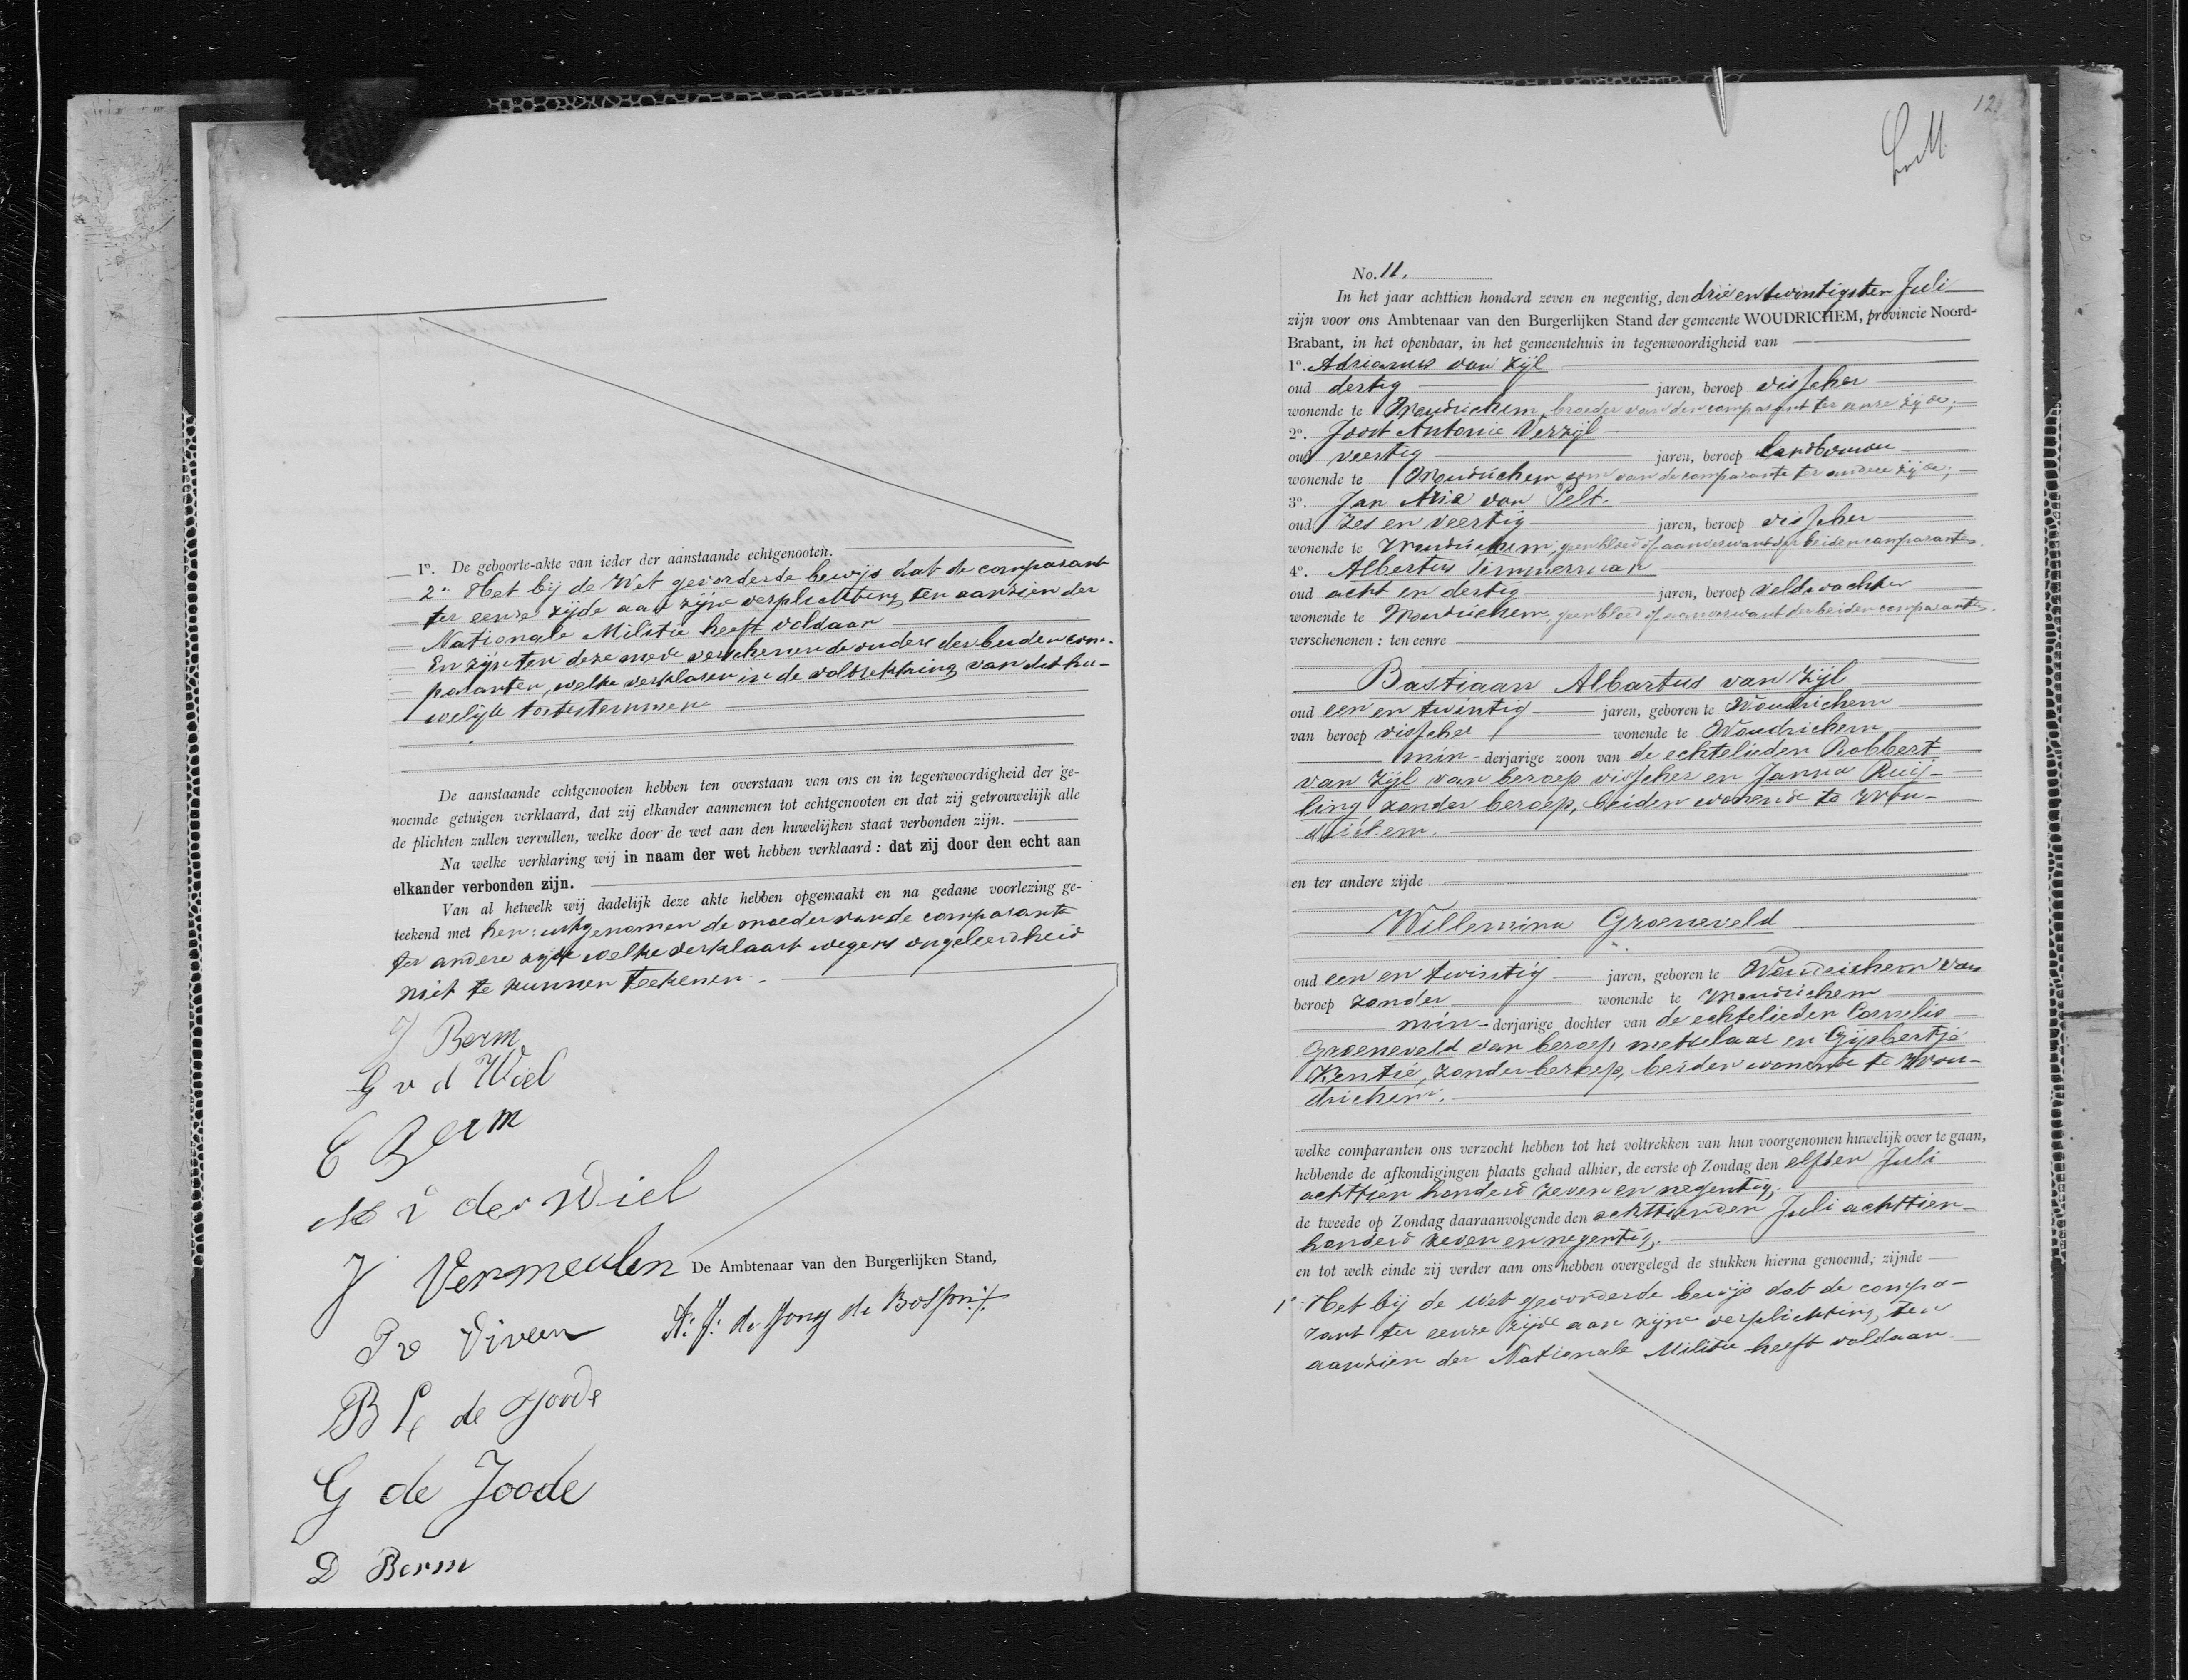 1º. De geboorte-akte van ieder der aanstaande echtgenooten.
2º Het bij de Wet gevorderde bewijs dat de comparant
ter eenre zijde aan zijne verplichting ten aanzien der
Nationale Militie heeft voldaan
En zijn ten deze mede verschenen de ouders der beiden com-
paranten, welke verklaren in de voltrekking van dit hu-
welijk toetestemmen
De aanstaande echtgenooten hebben ten overstaan van ons en in tegenwoordigheid der ge-
noemde getuigen verklaard, dat zij elkander aannemen tot echtgenooten en dat zij getrouwelijk alle
de plichten zullen vervullen, welke door de wet aan den huwelijken staat verbonden zijn.
Na welke verklaring wij in naam der wet hebben verklaard: dat zij door den echt aan
elkander verbonden zijn.
Van al hetwelk wij dadelijk deze akte hebben opgemaakt en na gedane voorlezing ge-
teekend met hen: uitgenomen de moeder van de comparante
ter andere zijde welke verklaart wegens ongeleerdheid
niet te kunnen teekenen.
J Berm
G v d Wiel
E Berm
M v der Wiel
J Vermeulen
De Ambtenaar van den Burgerlijken Stand,
Viveen
de Joode
G de Joode
D Berm
12
No. 11.
In het jaar achttien honderd zeven en negentig, den drie en twintigsten Juli
zijn voor ons Ambtenaar van den Burgerlijken Stand der gemeente WOUDRICHEM, provincie Noord-
Brabant, in het openbaar, in het gemeentehuis in tegenwoordigheid van
1º. Adrianus van Zijl
oud dertig jaren, beroep visscher
wonende te Woudrichem, broeder van den comparant ter eenre zijde;
2º. Joost Antonie Verzijl
oud veertig jaren, beroep landbouwer
wonende te Woudrichem, oom van de comparante ter andere zijde;
3º. Jan Arie van Pelt.
oud zes en veertig jaren, beroep visscher
wonende te Woudrichem, geen bloed of aanverwant der beiden comparanten.
4º. Albertus Timmerman
oud acht en dertig jaren, beroep veldwachter
wonende te Woudrichem, geen bloed of aanverwant der beiden comparanten.
verschenenen: ten eenre
Bastiaan Albartus van Zijl
oud een en twintig jaren, geboren te Woudrichem
van beroep visscher wonende te Woudrichem
min-derjarige zoon van de echtelieden Robbert
van Zijl van beroep visscher en Janna Ruij-
ling zonder beroep, beiden wonende te Wou-
drichem.
en ter andere zijde
Willemina Groeneveld
oud een en twintig jaren, geboren te Woudrichem van
beroep zonder wonende te Woudrichem
min-derjarige dochter van de echtelieden Cornelis
Groeneveld van beroep metselaar en Gijsbertje
Kentie, zonder beroep, beiden wonende te Wou-
drichem.
welke comparanten ons verzocht hebben tot het voltrekken van hun voorgenomen huwelijk over te gaan,
hebbende de afkondigingen plaats gehad alhier, de eerste op Zondag den elfden Juli
achttien honderd zeven en negentig,
de tweede op Zondag daaraanvolgende den achttienden Juli achttien-
honderd zeven en negentig.
en tot welk einde zij verder aan ons hebben overgelegd de stukken hierna genoemd; zijnde
1º Het bij de Wet gevorderde bewijs dat de compa-
rant ter eenre zijde aan zijne verplichting ten
aanzien der Nationale Militie heeft voldaan.